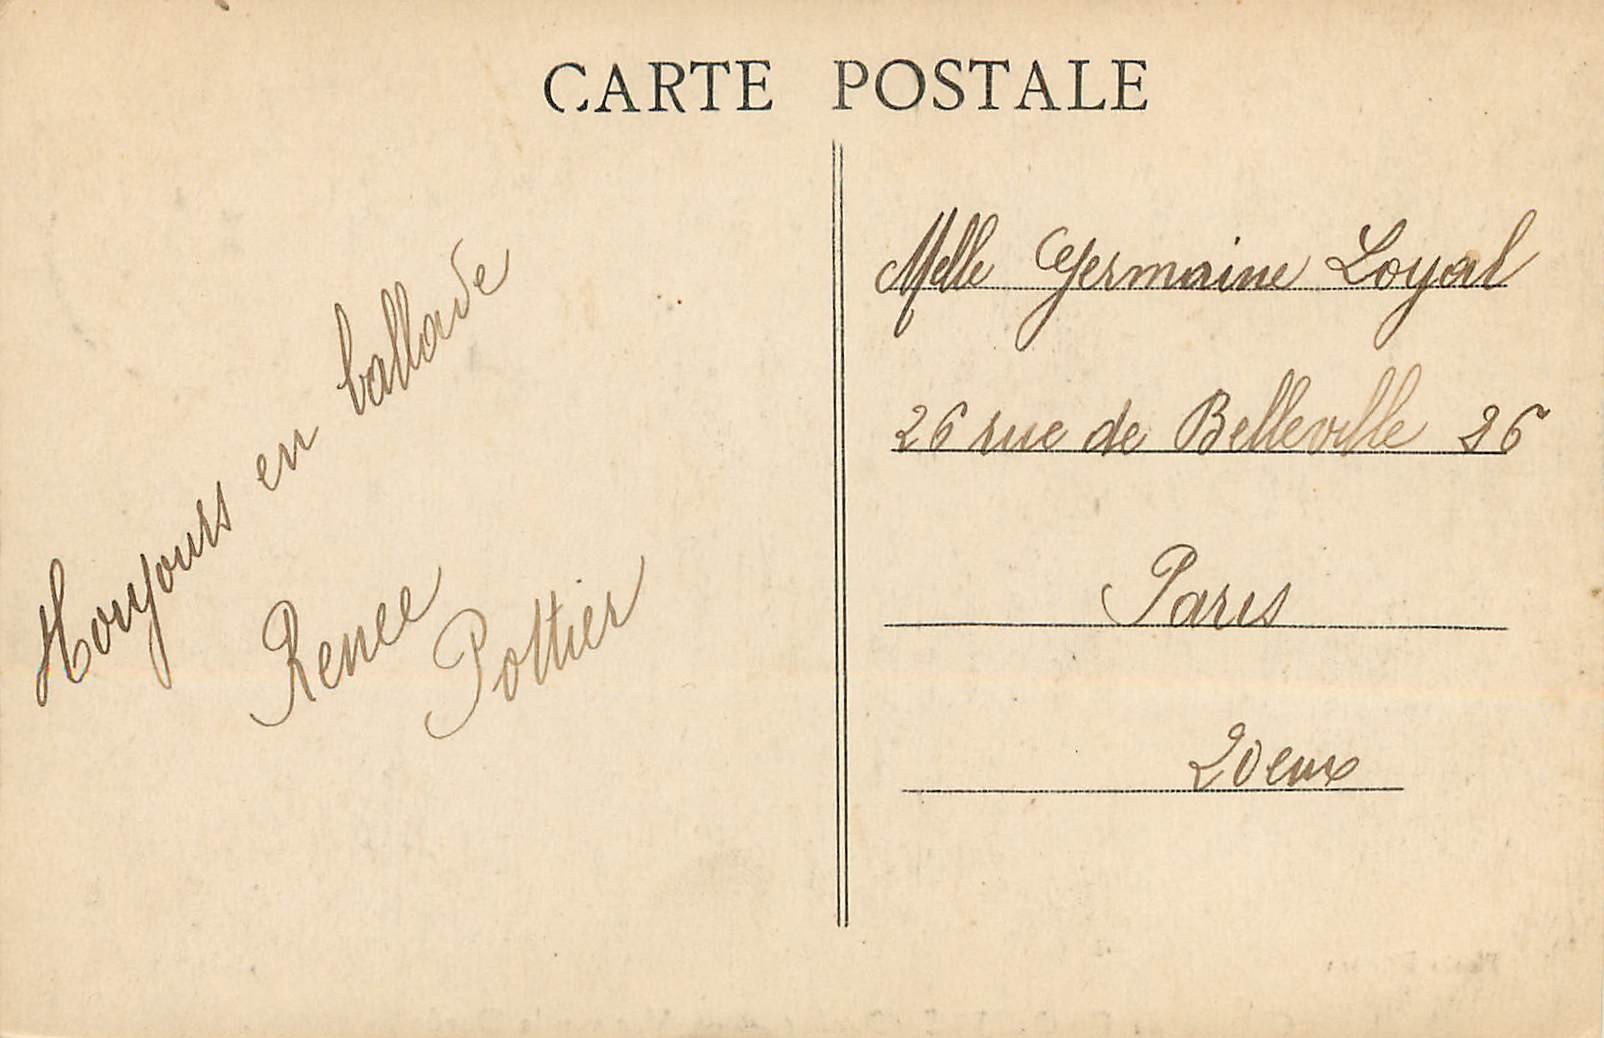 CARTE POSTALE
Toujours en ballade
Renee
Pottier
Melle Germaine Loyal
26 rue de Belleville 26
Paris
20eme